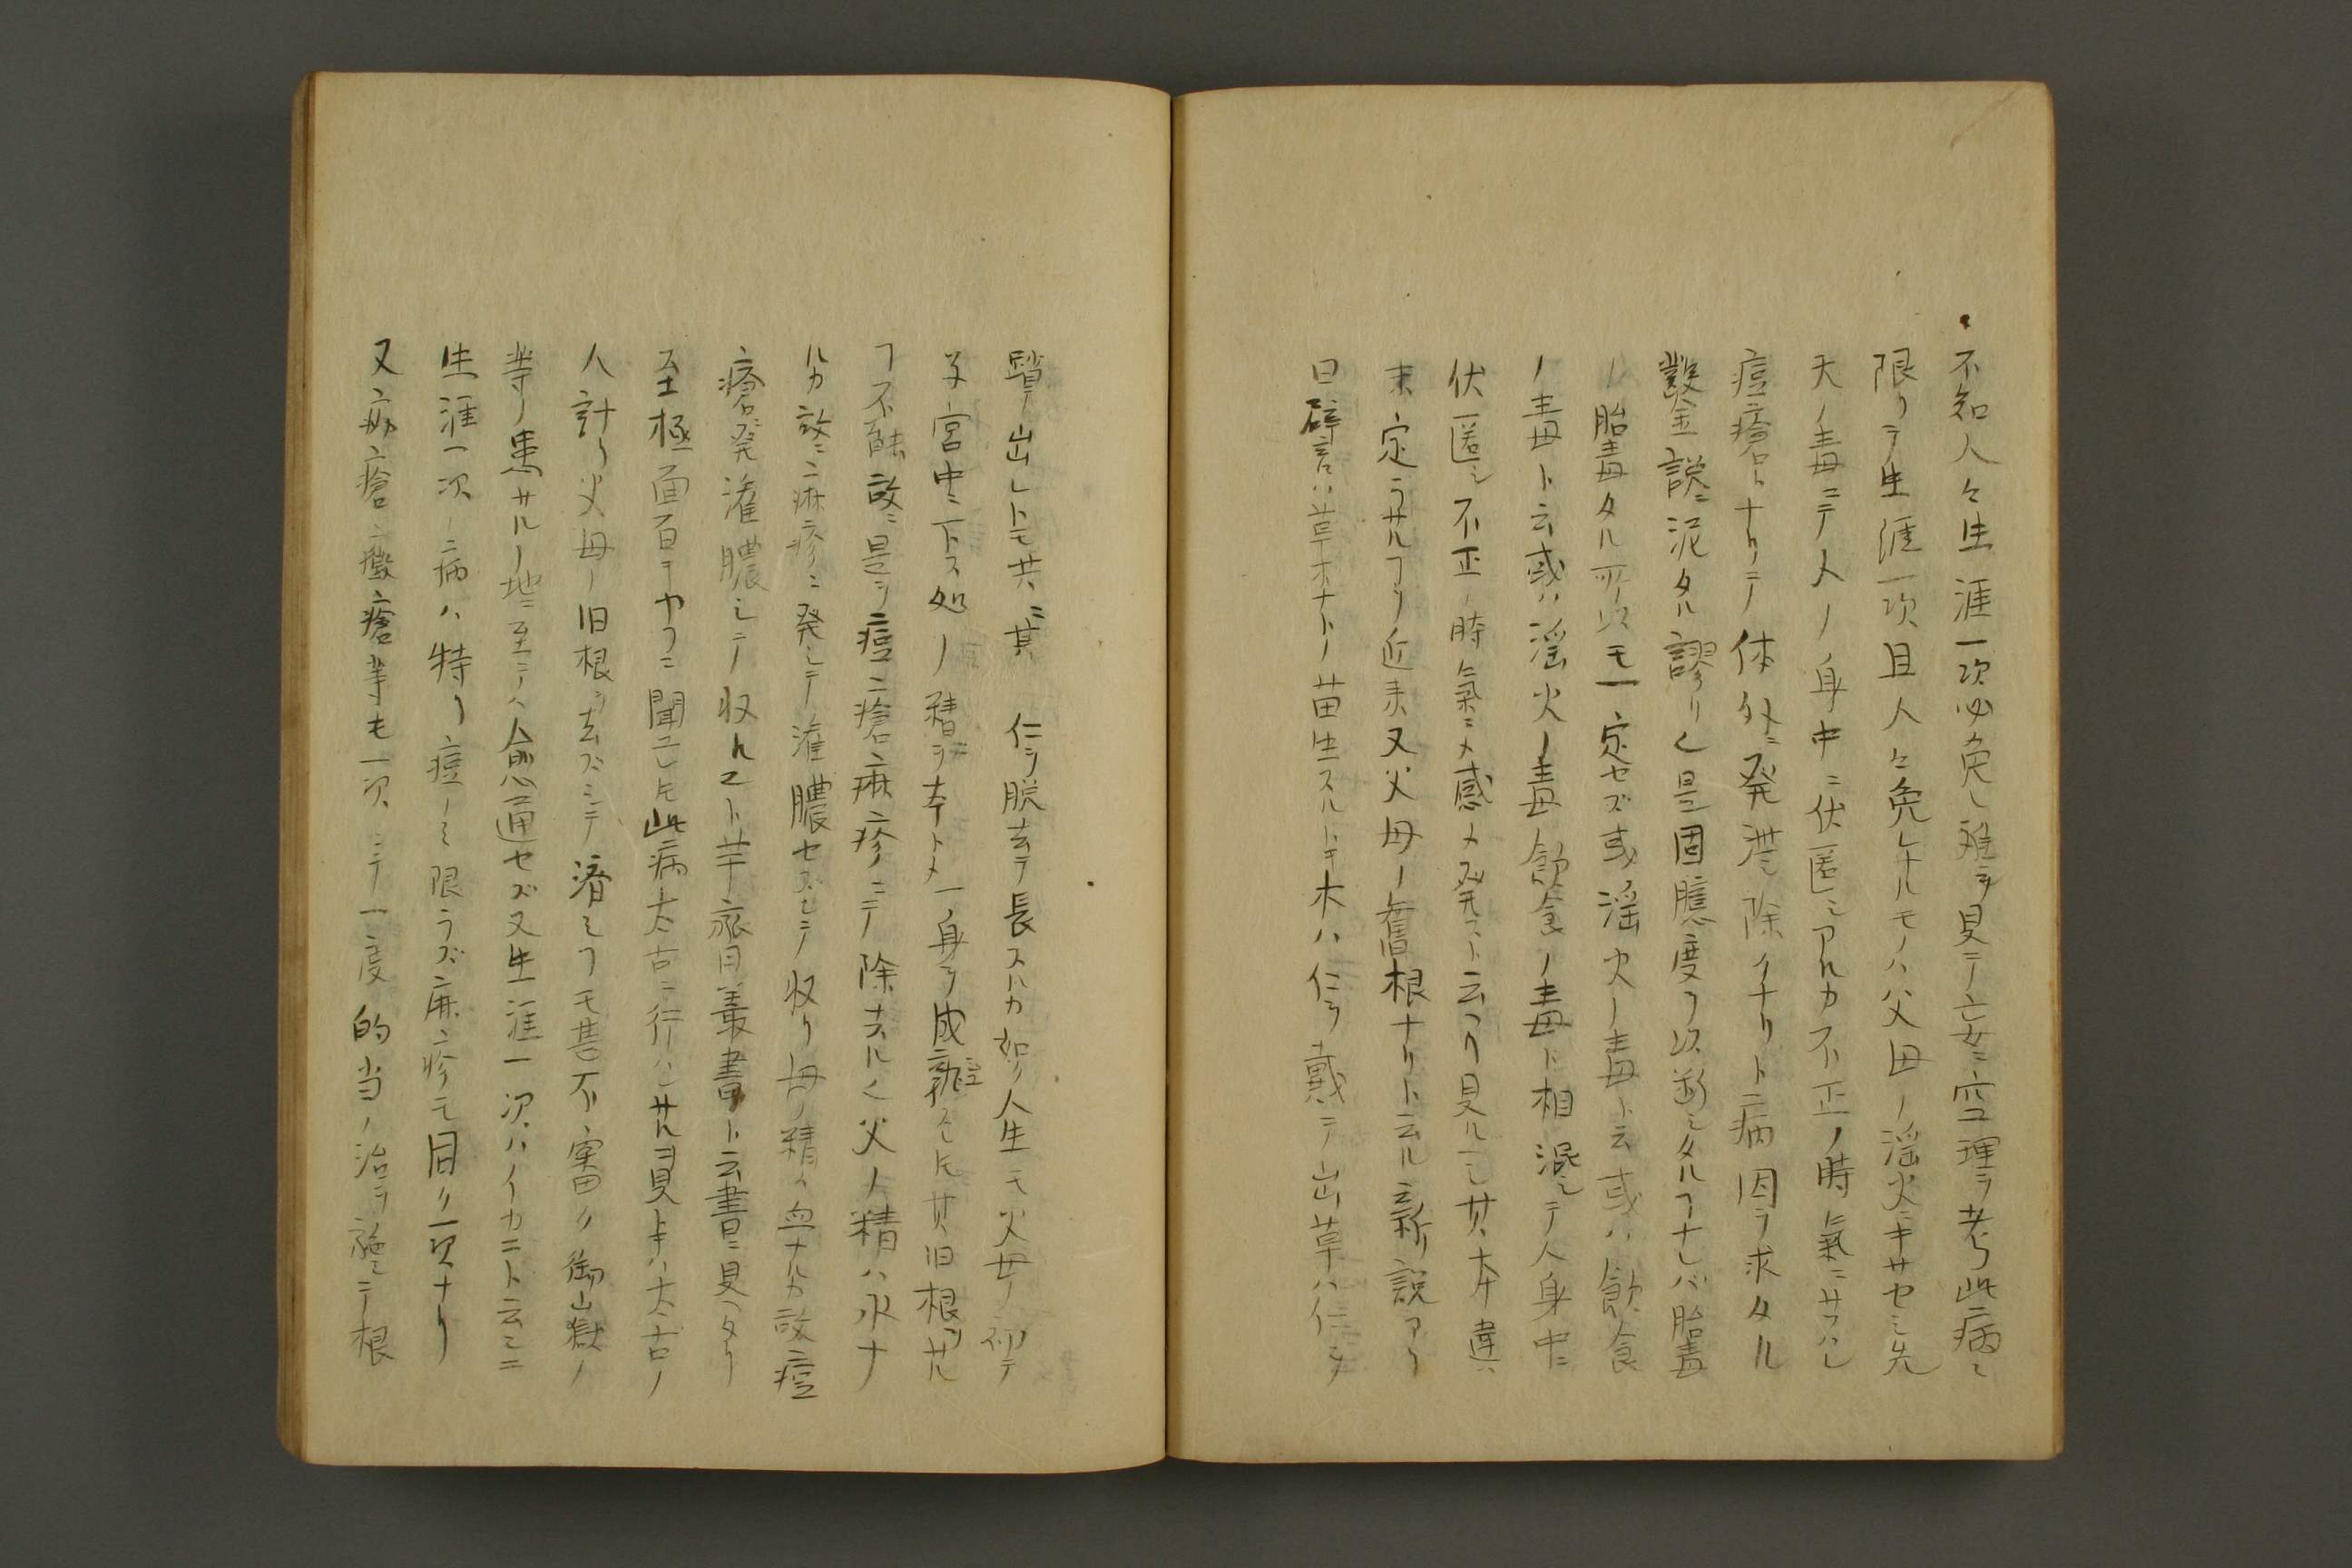 不知人々生涯一次必免レ難ヲ見テ妄ニ空理ヲ考ヘ此病ニ
限リテ生涯一次且人々免レサルモノハ父母ノ淫火ニキサセシ先
天ノ毒ニテ人ノ身中ニ伏匿シアルカ不正ノ時氣ニサソハレ
痘瘡トナリテ体外ニ発泄シ除クナリト病因ヲ求タル
鑿說ニ泥タル謬リ也是固臆度ヲ以断シタルヿナレバ胎毒
ノ胎毒タル所以モ一定セズ或淫火ノ毒ト云或ハ飲食
ノ毒ト云或ハ淫火ノ毒飲食ノ毒ト相混シテ人身中ニ
伏匿シ不正ノ時氣ニ感メ発スト云ヘリ見ルヘシ其本違ハ
未定ラサルヿヲ近来又父母ノ舊根ナリト云ル新說アリ
曰譬言ハ草木ナトノ苗生スルトキ木ハ仁ヲ戴テ出草ハ仁ヲ
留テ出レトモ共ニ其仁ヲ脱去テ長スルカ如ク人生モ父母ノ初テ
子宮中ニ下ス処ノ精ヲ本トメ一身ヲ成就スレ𪜈其旧根ヲ脱ル
ヿ不能故ニ是ヲ痘瘡麻疹ニテ除去ル也父ノ精ハ水ナ
ルカ故ニ麻疹ニ発シテ灌膿セズシテ収リ母ノ精ハ血ナルカ故痘
瘡ニ発灌膿シテ収ルヱト芋瘢目叢書ト云書ニ見ヘタリ
至極面白キヤフニ聞ユレ𪜈此病太古ニ行ハレサル
人計リ父母ノ旧根ヲ去ズシテ済シヿモ甚不審ク御山獄ノ
等ノ患サルノ地ニ至テハ愈通セズ又生涯一次ハイカニト云ニ
生涯一次ノ病ハ特リ痘ノミ限ラズ麻疹モ同ク一次ナリ
又疥瘡黴瘡等モ一次ニテ一度的当ノ治ヲ施シテ根